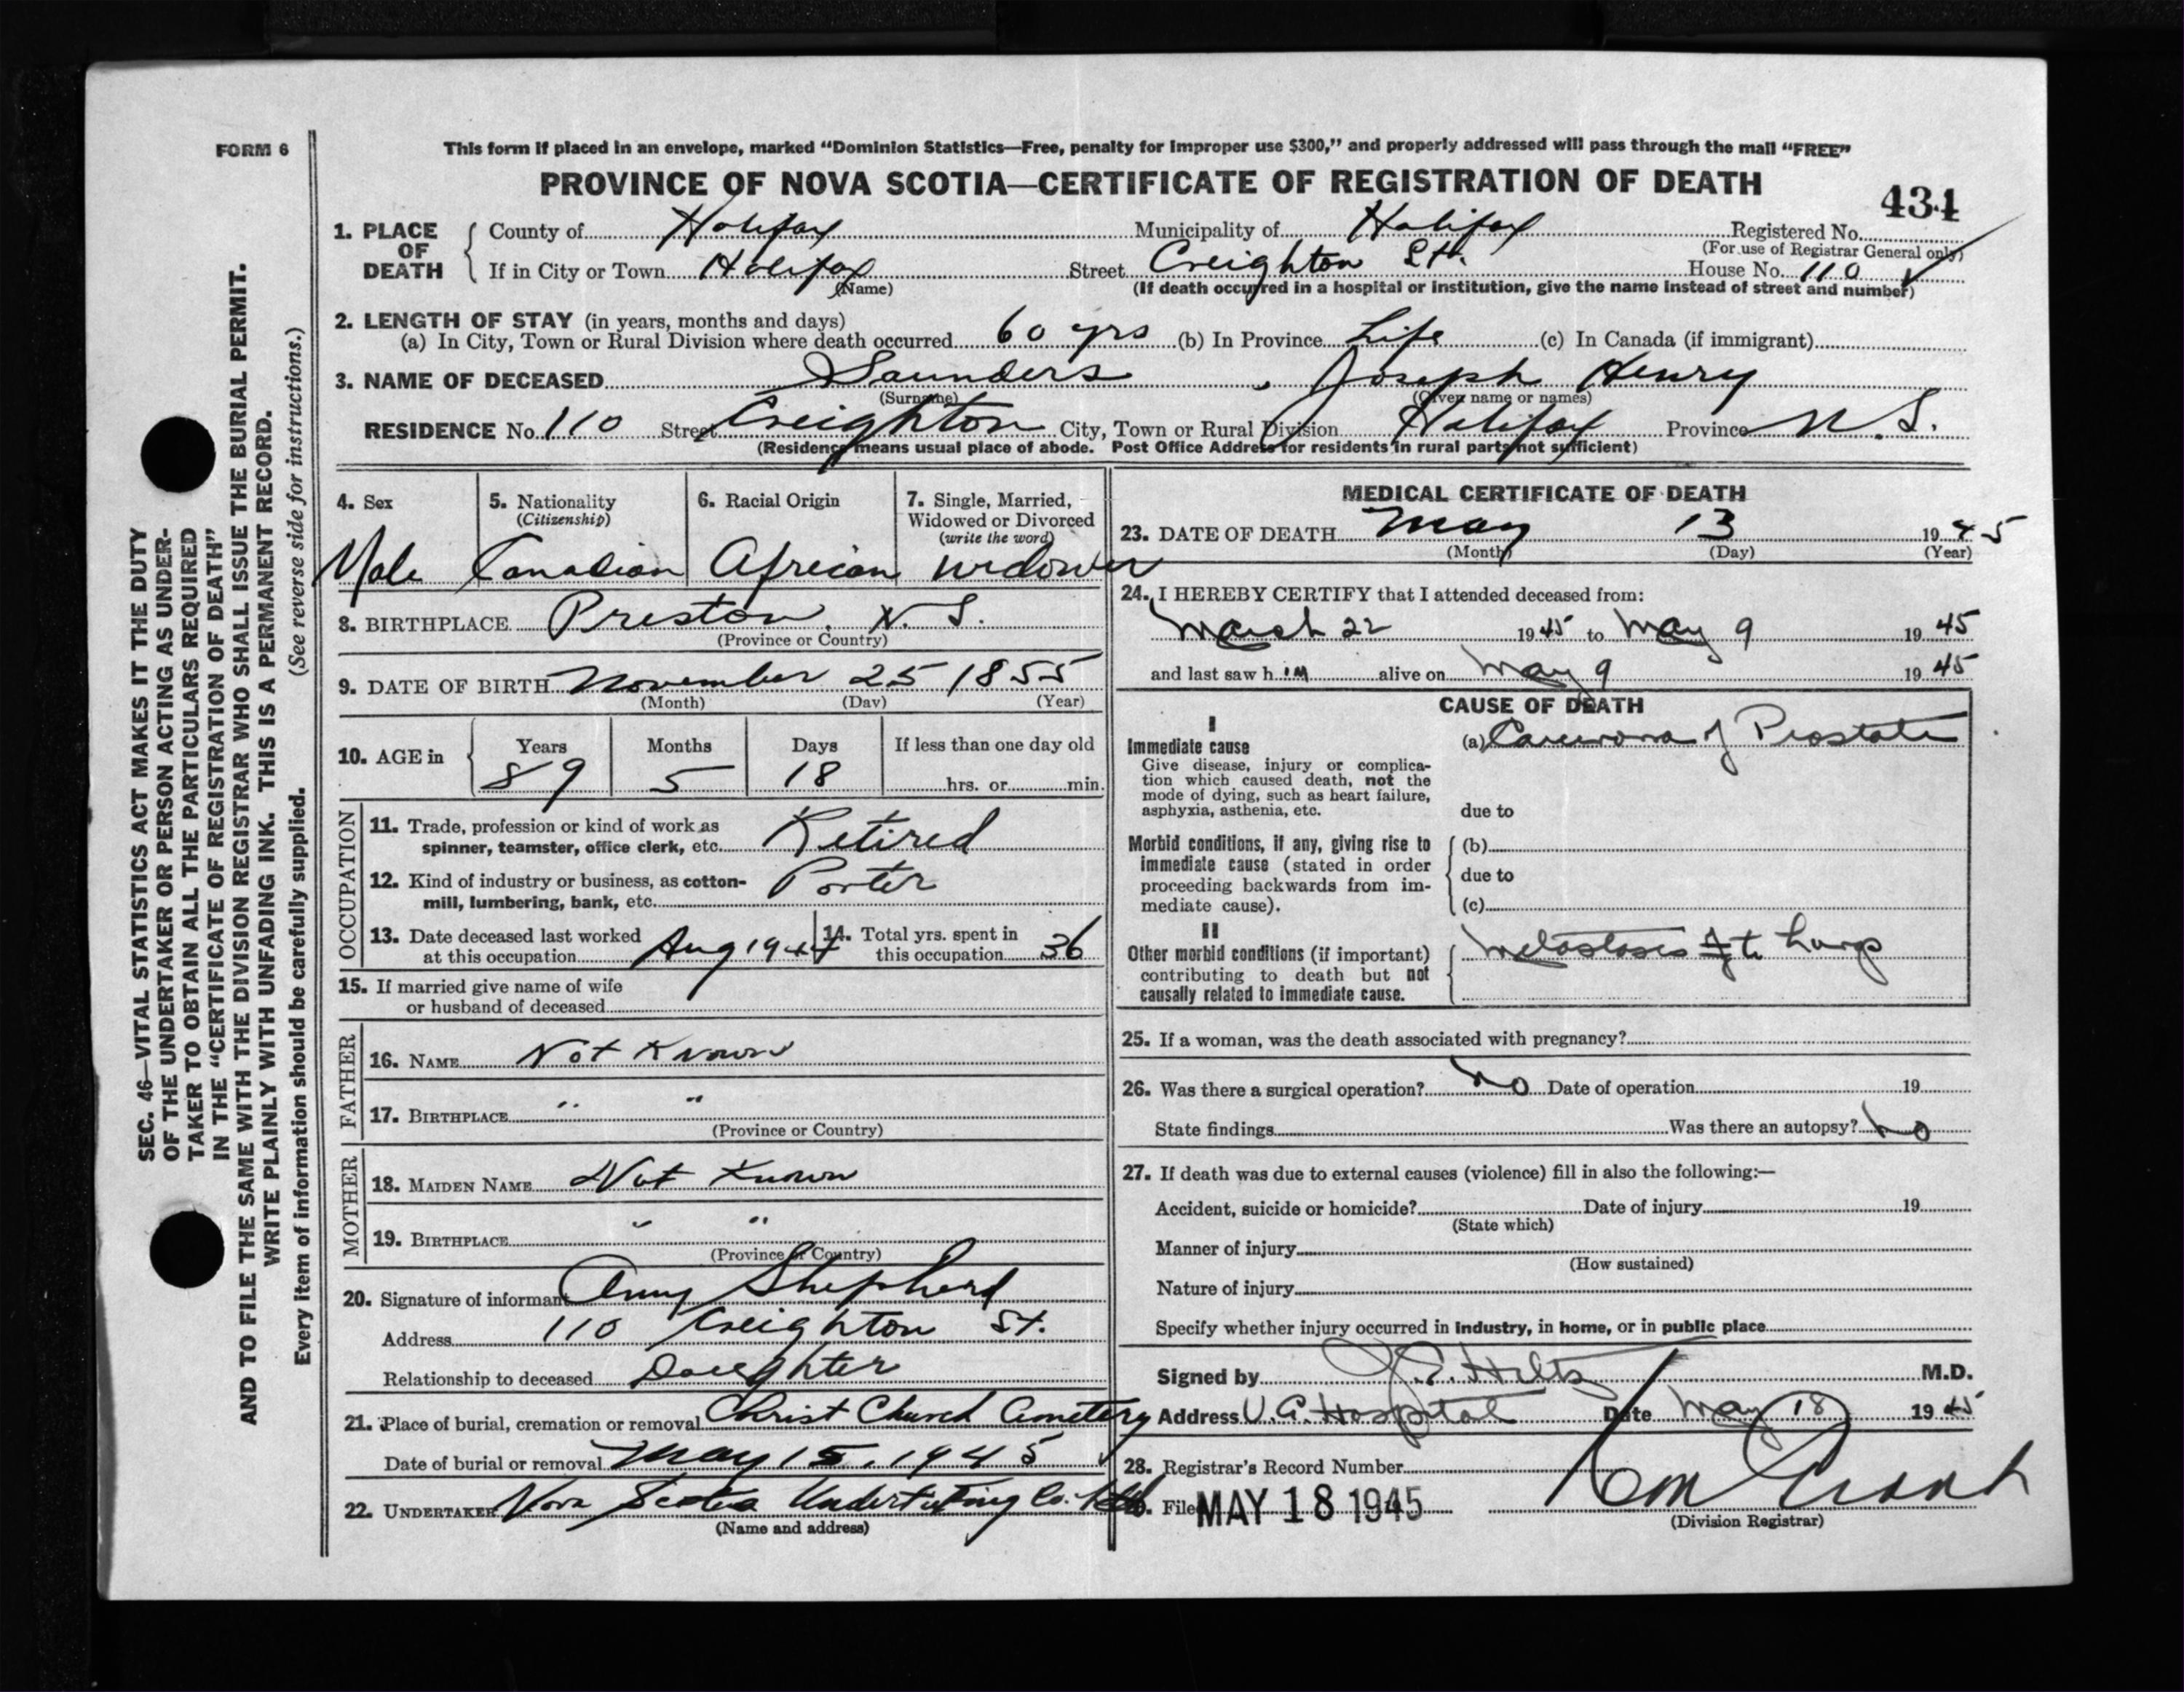 FORM 6
This form if placed in an envelope, marked "Dominion Statistics—Free, penalty for improper use $300," and properly addressed will pass through the mail "FREE"
PROVINCE OF NOVA SCOTIA—CERTIFICATE OF REGISTRATION OF DEATH
434
1. PLACE OF DEATH { County of Halifax Municipality of Halifax Registered No.
(For use of Registrar General only)
If in City or Town Halifax Street Creighton St. House No. 110
(Name) (If death occurred in a hospital or institution, give the name instead of street and number)
2. LENGTH OF STAY (in years, months and days)
(a) In City, Town or Rural Division where death occurred 60 yrs (b) In Province Life (c) In Canada (if immigrant)
3. NAME OF DECEASED Saunders, Joseph Henry
(Surname) (Given name or names)
RESIDENCE No. 110 Street Creighton City, Town or Rural Division Halifax Province N.S.
(Residence means usual place of abode. Post Office Address for residents in rural parts not sufficient)
4. Sex 5. Nationality (Citizenship) 6. Racial Origin 7. Single, Married, Widowed or Divorced (write the word)
Male Canadian African widower
8. BIRTHPLACE Preston, N.S.
(Province or Country)
9. DATE OF BIRTH November 25 1855
(Month) (Day) (Year)
10. AGE in { Years Months Days If less than one day old
89 5 18 hrs. or min.
OCCUPATION
11. Trade, profession or kind of work as
spinner, teamster, office clerk, etc. Retired
12. Kind of industry or business, as cotton-
mill, lumbering, bank, etc. Porter
13. Date deceased last worked
at this occupation Aug 1944
14. Total yrs. spent in
this occupation 36
15. If married give name of wife
or husband of deceased
FATHER
16. NAME Not Known
17. BIRTHPLACE " "
(Province or Country)
MOTHER
18. MAIDEN NAME Not Known
19. BIRTHPLACE " "
(Province or Country)
20. Signature of informant Amy Shepherd
Address 110 Creighton St.
Relationship to deceased Daughter
21. Place of burial, cremation or removal Christ Church Cemetery
Date of burial or removal May 15, 1945
22. UNDERTAKER Nova Scotia Undertaking Co. Ltd
(Name and address)
MEDICAL CERTIFICATE OF DEATH
23. DATE OF DEATH May 13 1945
(Month) (Day) (Year)
24. I HEREBY CERTIFY that I attended deceased from:
March 22 1945 to May 9 1945
and last saw him alive on May 9 1945
CAUSE OF DEATH
I
Immediate cause (a) Carcinoma of Prostate
Give disease, injury or complica-
tion which caused death, not the
mode of dying, such as heart failure,
asphyxia, asthenia, etc. due to
Morbid conditions, if any, giving rise to (b)
immediate cause (stated in order
proceeding backwards from im- due to
mediate cause). (c)
II
Other morbid conditions (if important) Metastases to Lungs
contributing to death but not
causally related to immediate cause.
25. If a woman, was the death associated with pregnancy?
26. Was there a surgical operation? No Date of operation 19
State findings Was there an autopsy? No
27. If death was due to external causes (violence) fill in also the following:—
Accident, suicide or homicide? Date of injury 19
(State which)
Manner of injury
(How sustained)
Nature of injury
Specify whether injury occurred in industry, in home, or in public place
Signed by J.E. Hiltz M.D.
Address V.G. Hospital Date May 18 1945
28. Registrar's Record Number
29. Filed MAY 18 1945
(Division Registrar)
SEC. 46—VITAL STATISTICS ACT MAKES IT THE DUTY
OF THE UNDERTAKER OR PERSON ACTING AS UNDER-
TAKER TO OBTAIN ALL THE PARTICULARS REQUIRED
IN THE "CERTIFICATE OF REGISTRATION OF DEATH"
AND TO FILE THE SAME WITH THE DIVISION REGISTRAR WHO SHALL ISSUE THE BURIAL PERMIT.
WRITE PLAINLY WITH UNFADING INK. THIS IS A PERMANENT RECORD.
Every item of information should be carefully supplied. (See reverse side for instructions.)